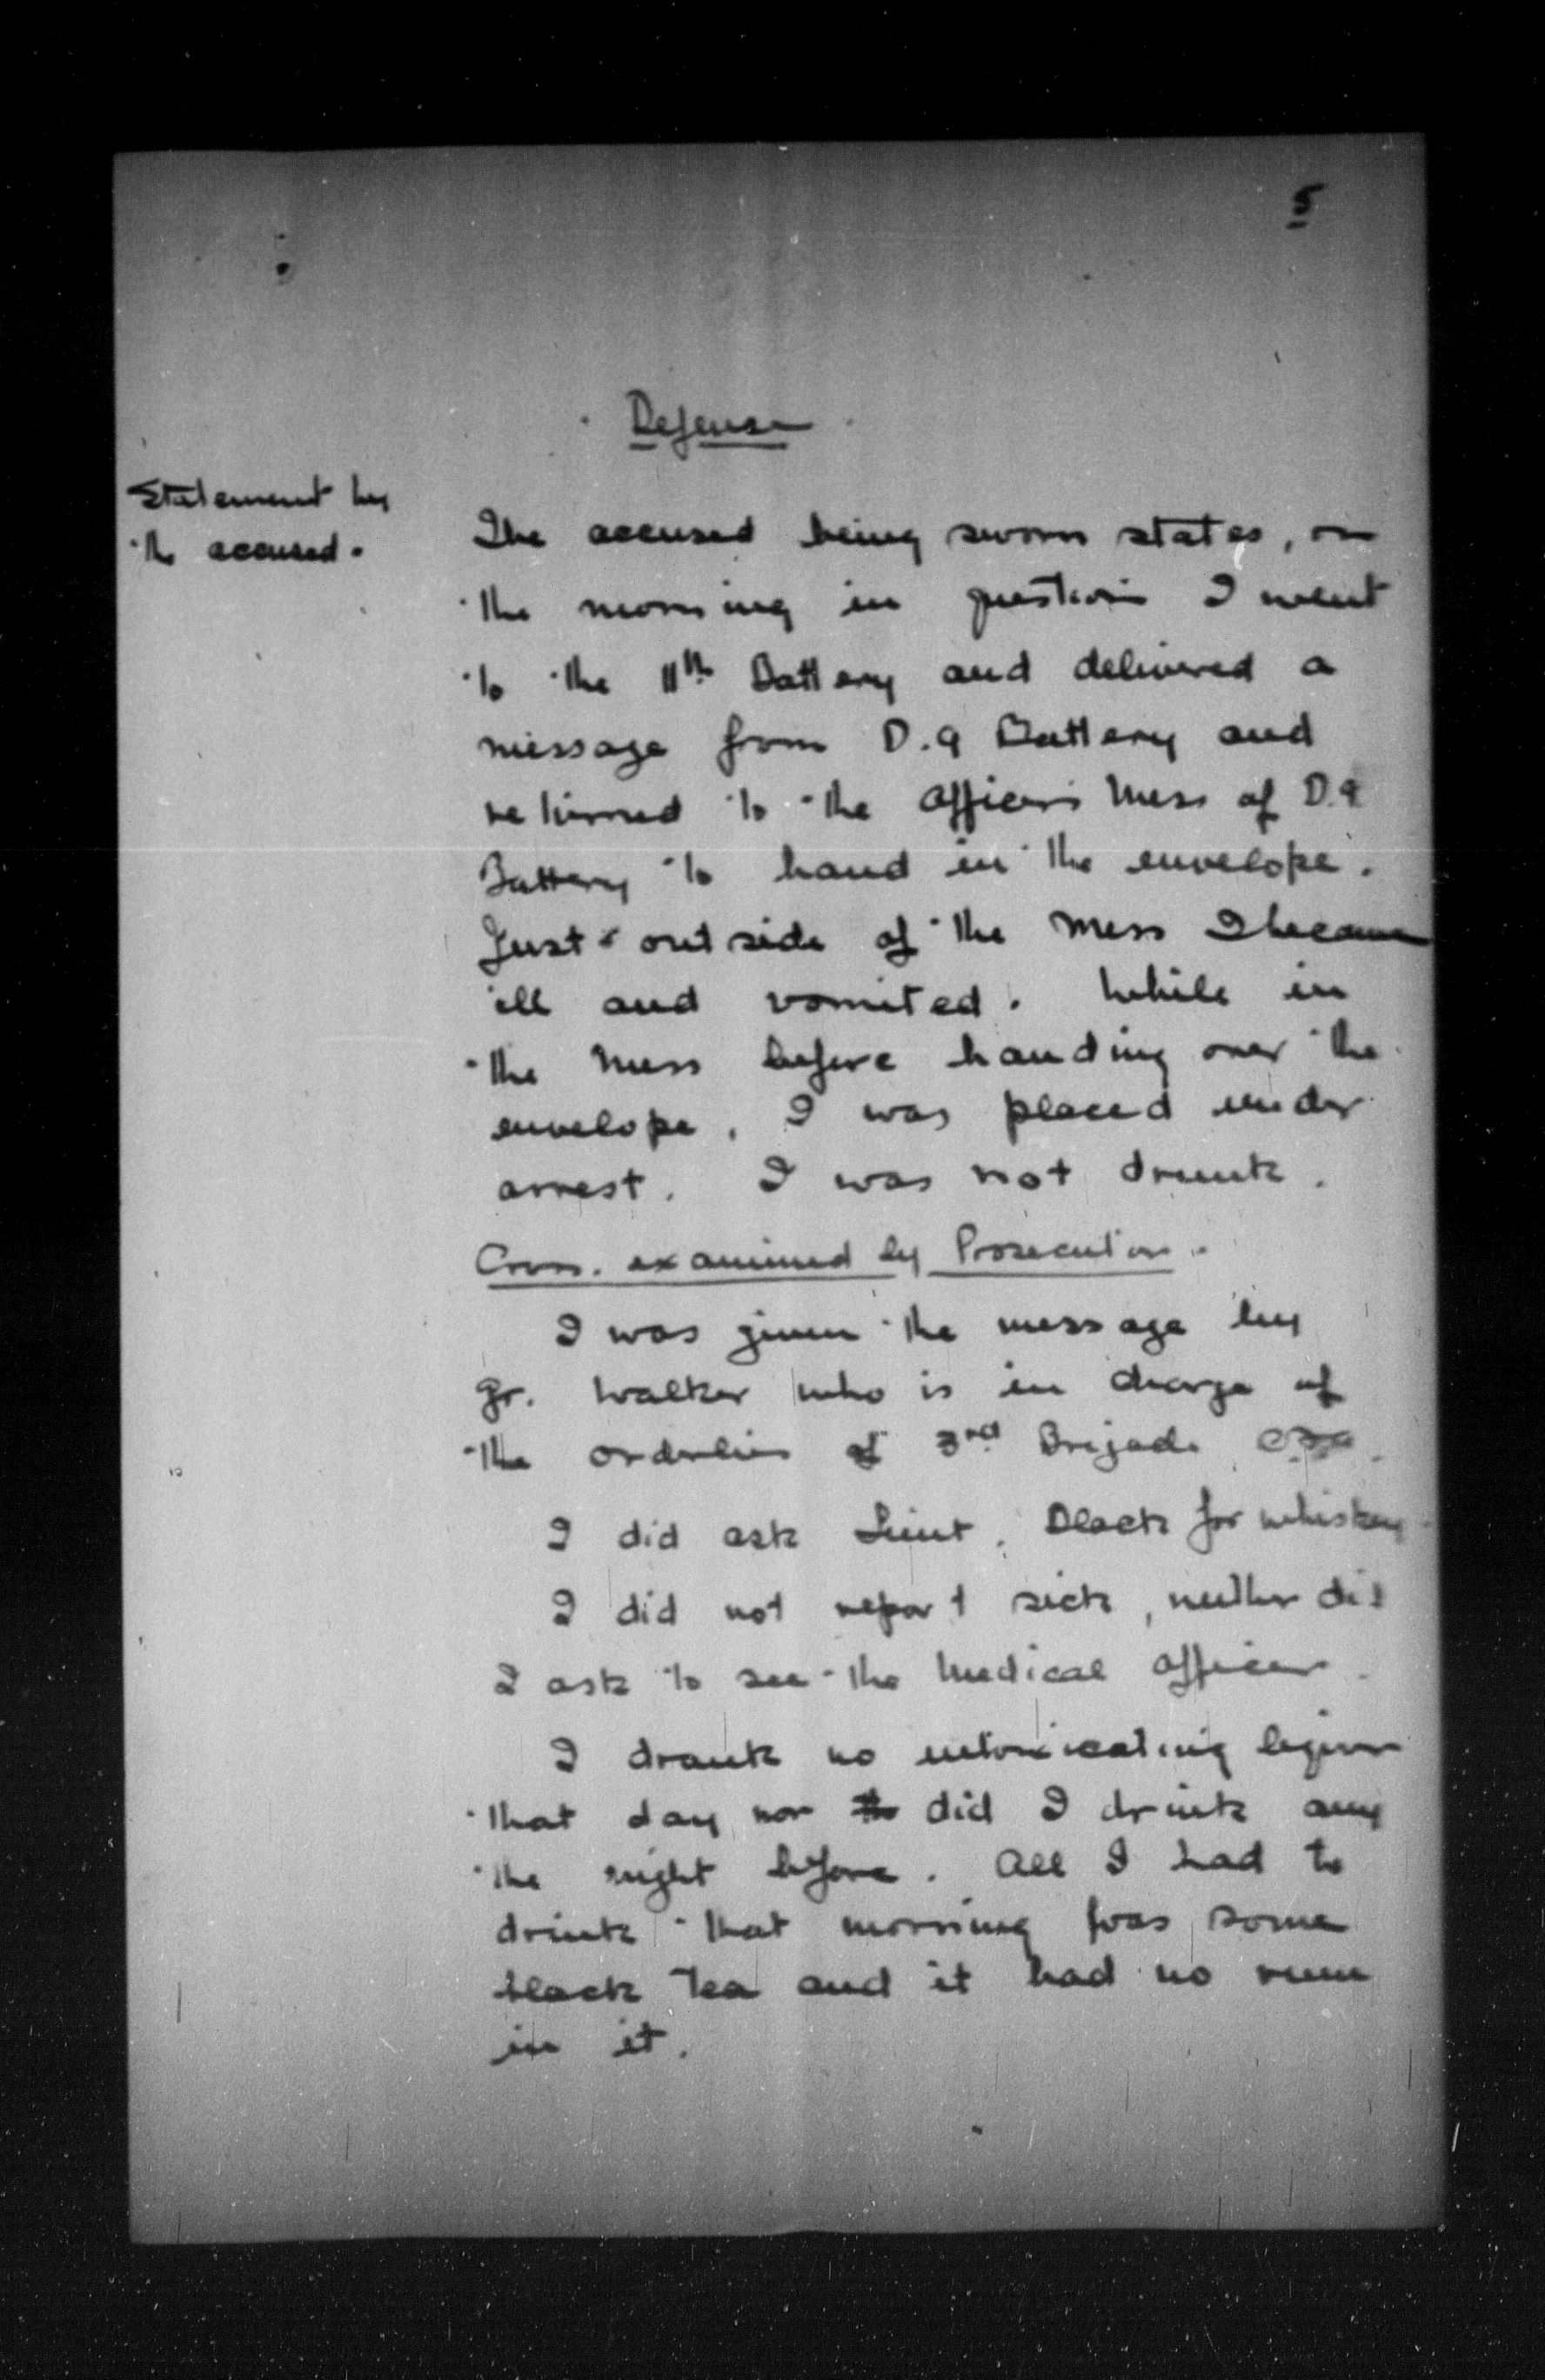 5
Defense
Statement by
the accused.
The accused being sworn states, on
the morning in question I went
to the 11th Battery and delivered a
message from D.9 Battery and
returned to the Officers Mess of D.9
Battery to hand in the envelope.
Just outside of the Mess I became
ill and vomited. While in
the Mess before handing over the
envelope, I was placed under
arrest. I was not drunk.
Cross. examined by Prosecution.
I was given the message by
Gr. Walker who is in charge of
the orderlies of 3rd Brigade
I did ask Lieut. Black for whiskey
I did not report sick, neither did
I ask to see the Medical Officer.
I drank no intoxicating liquor
that day nor did I drink any
the night before. All I had to
drink that morning was some
black tea and it had no rum
in it.